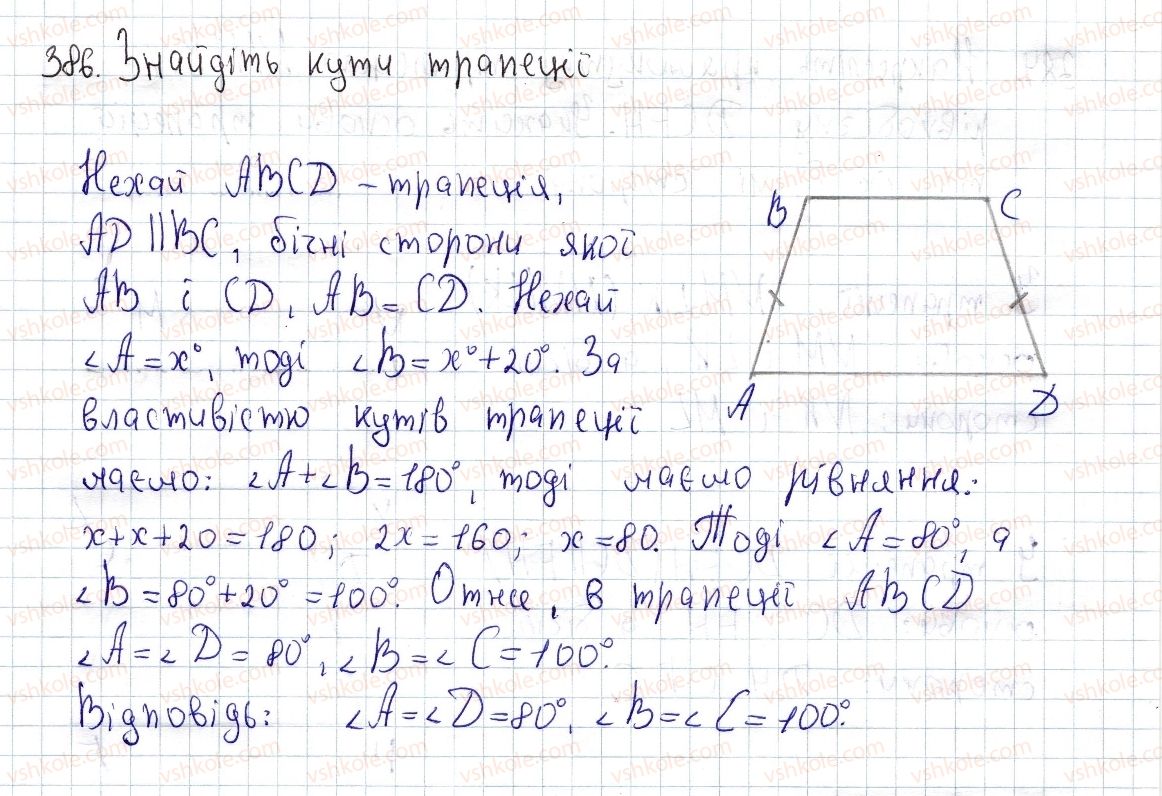 386. Знайдіть кути трапеції
Нехай ABCD – трапеція,
AD || BC, бічні сторони якої
AB і CD, AB = CD. Нехай
∠A = x°, тоді ∠B = x° + 20°. За
властивістю кутів трапеції
маємо: ∠A + ∠B = 180°, тоді маємо рівняння:
x + x + 20 = 180; 2x = 160; x = 80. Тоді ∠A = 80°, а
∠B = 80° + 20° = 100°. Отже, в трапеції ABCD
∠A = ∠D = 80°, ∠B = ∠C = 100°.
Відповідь: ∠A = ∠D = 80°, ∠B = ∠C = 100°.
B C
A D
vshkole.com